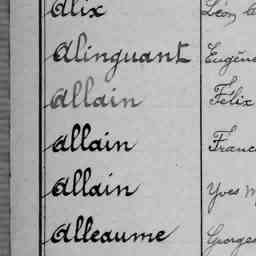 Alix Léon
Alinguant Eugène
Allain Félix
Allain
Allain Yves
Alleaume Georges